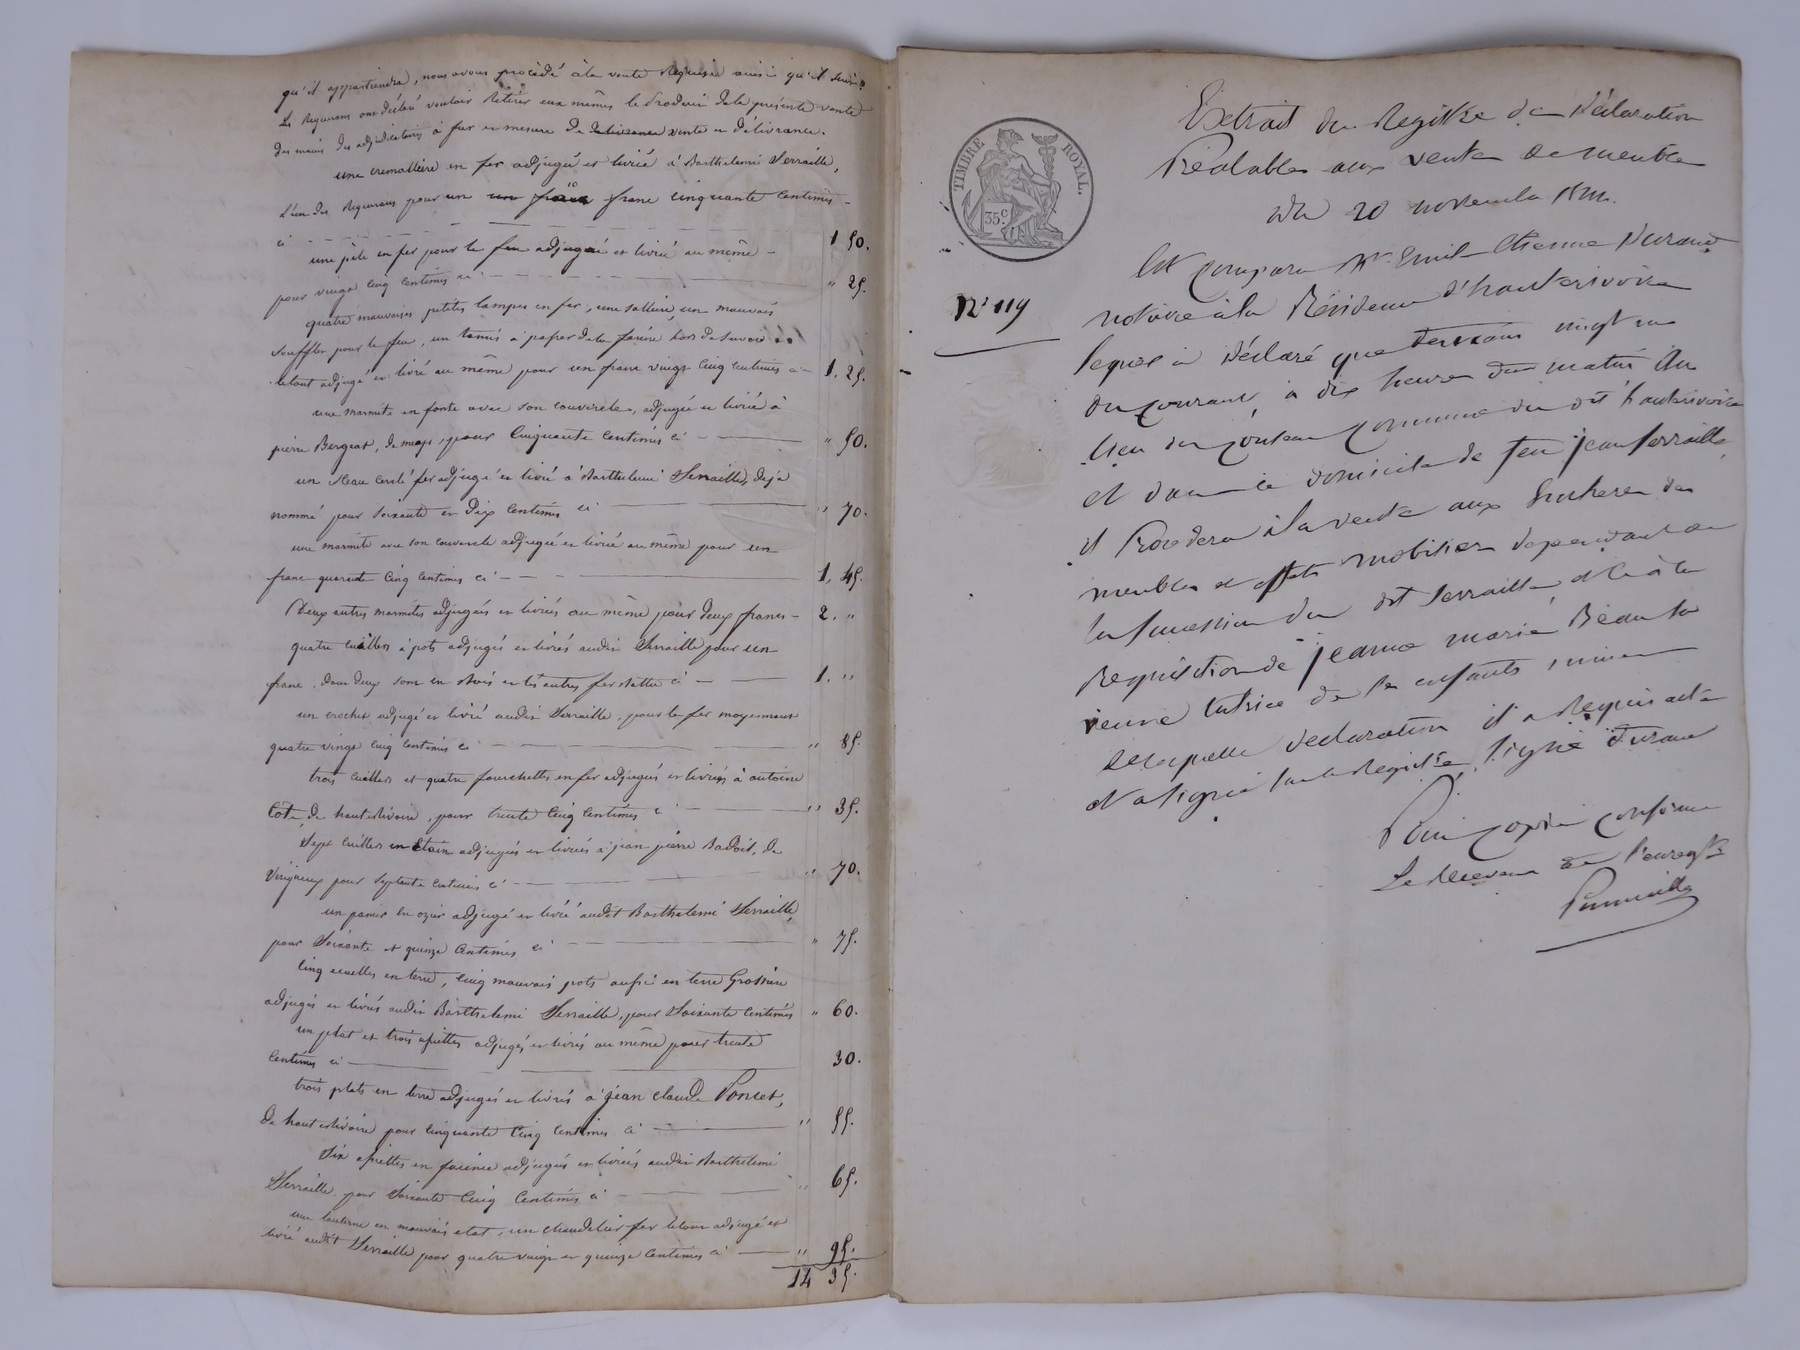 qu'il appartiendra, nous avons procédé à la vente requise ainsi qu'il suit:
Les Requerans ont déclaré vouloir retirer eux mêmes le produit de la présente vente
des mains des adjudicataires à fur et mesure de delivrance vente et délivrance.
une cremaillère en fer adjugée et livrée à Barthelemi Serraille,
l'un des Requerans pour un un franc franc cinquante centimes -
ci 1 50.
une pèle en fer pour le feu adjugée et livrée au même -
pour vingt cinq centimes ci " 25.
quatre mauvaises petites lampes en fer, une sallière, un mauvais
soufflet pour le feu, un tamis à passer de la farine hors de service
le tout adjugé et livré au même pour un franc vingt cinq centimes ci 1. 25.
une marmite en fonte avec son couvercle, adjugée et livrée à
pierre Bergeat, de mays, pour cinquante centimes ci " 50.
un seau cerclé fer adjugé et livré à Barthelemi Serraille, déjà
nommé pour soixante et dix centimes ci " 70.
une marmite avec son couvercle adjugée et livrée au même pour un
franc quarante cinq centimes ci 1. 45.
Deux autres marmites adjugées et livrées au même pour deux francs - 2. "
quatre cuillers à pots adjugés et livrés audit Serraille pour un
franc, dont deux sont en bois et les autres fer battu ci 1. "
un crochet adjugé et livré audit Serraille, pour le fer moyennant
quatre vingt cinq centimes ci " 85.
trois cuillers et quatre fourchettes en fer adjugés et livrées à antoine
Cote, de hauterivoire, pour trente cinq centimes ci " 35.
Sept cuillers en étain adjugées et livrées à jean pierre Badoit, de
Virigneux pour septante centimes ci " 70.
un panier en ozier adjugé et livré audit Barthelemi Serraille,
pour soixante et quinze centimes ci " 75.
Cinq ecuelles en terre, cinq mauvais pots aussi en terre Grossière
adjugés et livrés audit Barthelemi Serraille, pour soixante centimes " 60.
un plat et trois assiettes adjugés et livrés au même pour trente
centimes ci 30.
trois plats en terre adjugés et livrés à jean claude Poncet,
de hauterivoire pour cinquante cinq centimes ci " 55.
Six assiettes en faience adjugées et livrées audit Barthelemi
Serraille, pour soixante cinq centimes ci " 65.
une lanterne en mauvais etat, un chandelier fer le tout adjugé et
livré audit Serraille pour quatre vingt et quinze centimes ci " 95.
14 35.
TIMBRE ROYAL.
35 c
N° 119
Extrait du Registre de Déclaration
Préalables aux ventes de meubles
du 20 novembre
Est comparu Me Emile Etienne Durand
notaire à la Résidence d'hauterivoire
lequel a Déclaré que demain vingt un
du courant, à dix heures du matin au
lieu du commune du dit hauterivoire
et dans le domicile de feu jean Serraille,
il Procedera à la vente aux Encheres des
meubles et effets mobiliers dependant de
la succession du dit Serraille, et à la
Requisition de jeanne marie
veuve tutrice de ses enfants mineurs
de laquelle declaration il a Requis acte
et a signé sur le Registre, signé Durand
Pour copie conforme
Le Receveur de l'enregt